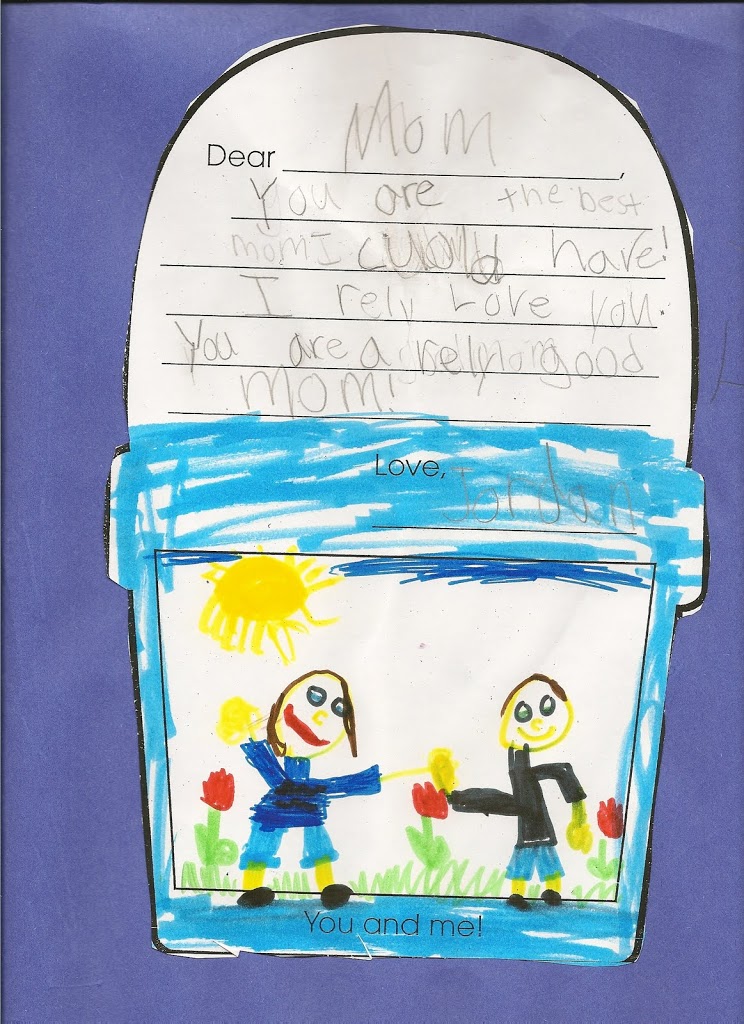 Dear Mom,
You are the best
mom I could have!
I rely Love you.
You are a rely good
mom!
Love, Jordan
You and me!